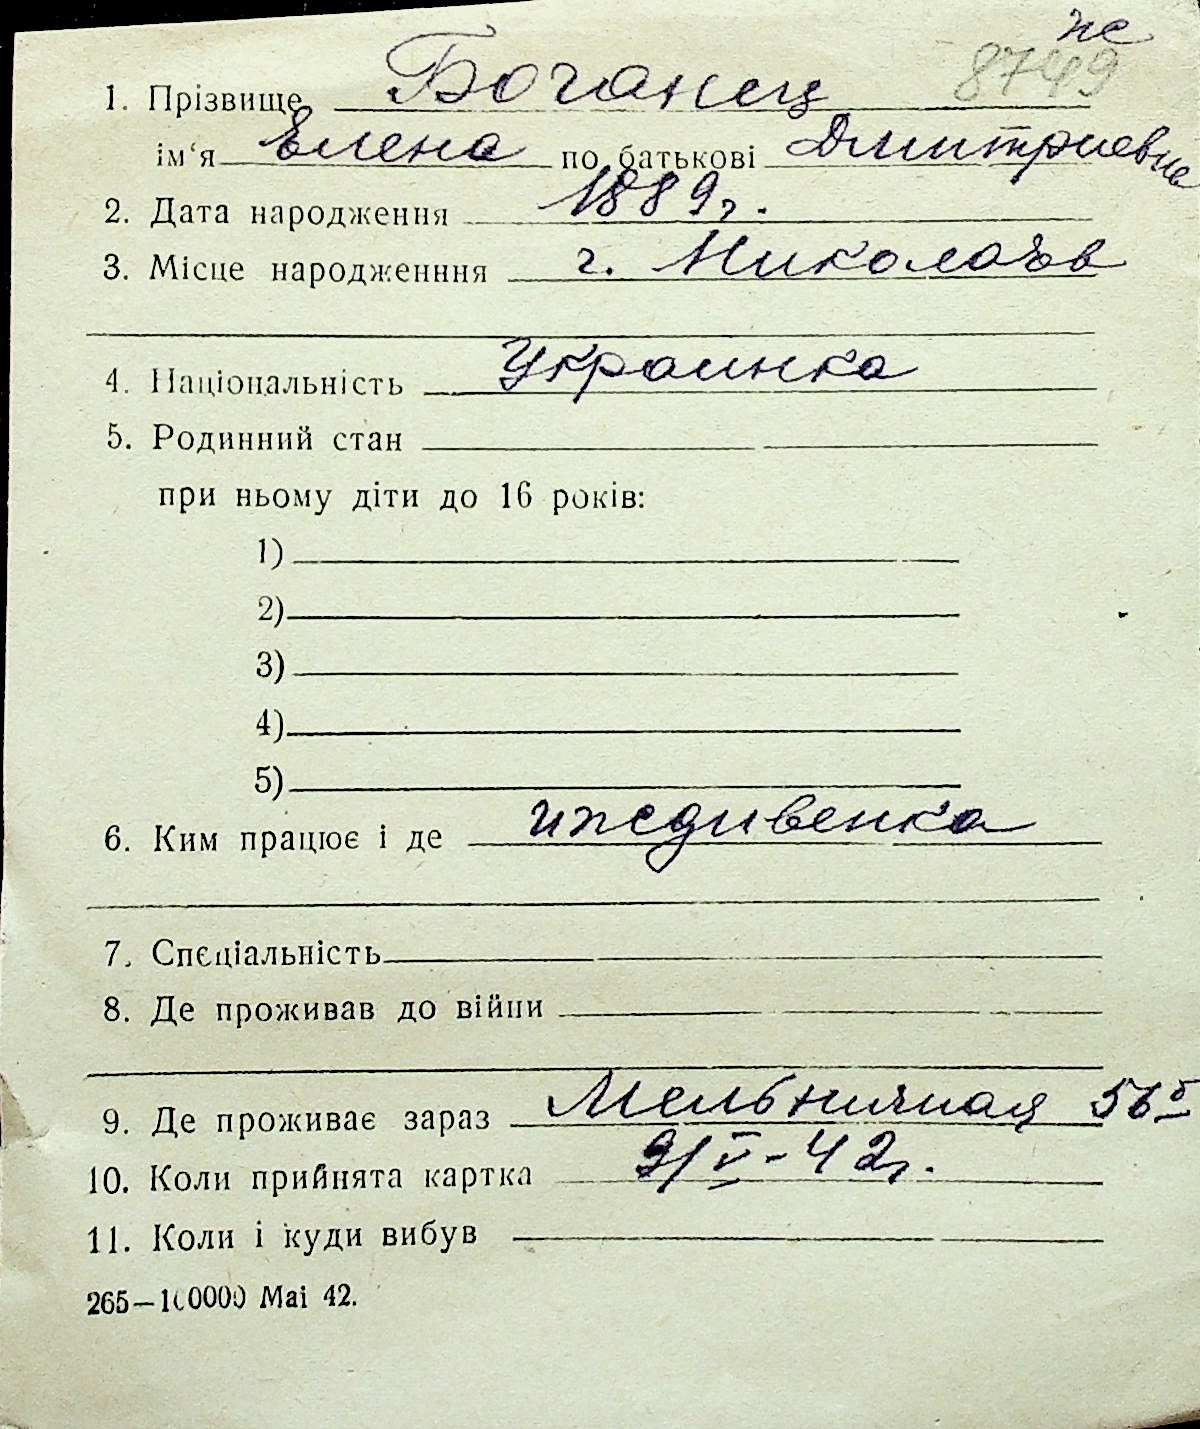 не
8749
1. Прізвище Боганец
ім‘я Елена по батькові Дмитриевна
2. Дата народження 1889 г.
3. Місце народженння г. Николаев
4. Національність Украинка
5. Родинний стан
при ньому діти до 16 років:
1)
2)
3)
4)
5)
6. Ким працює і де иждивенка
7. Спєціальність
8. Де проживав до війни
9. Де проживає зараз Мельничная 56
10. Коли прийнята картка 9/V-42г.
11. Коли і куди вибув
265—100000 Mai 42.